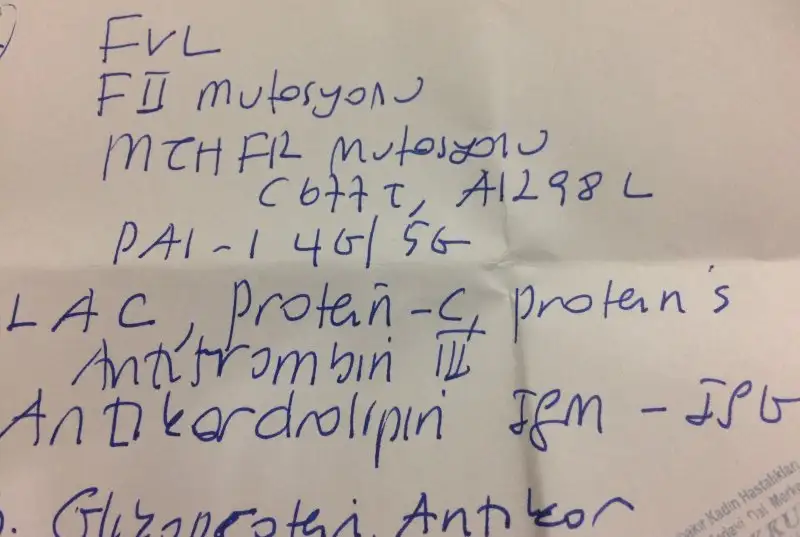 FVL
FII mutasyonu
MTHFR mutasyonu
C677T, A1298C
PAI-1 4G/5G
LAC, protein-C, protein s
Antitrombin III
Antikardiolipin IgM - IgG
Glikoprotein Antikor
Kadın Hastalıkları